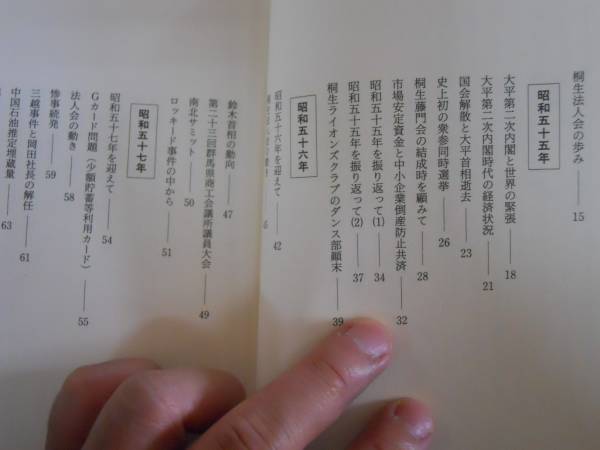 桐生法人会の歩み――15
昭和五十五年
大平第二次内閣と世界の緊張――18
大平第二次内閣時代の経済状況――21
国会解散と大平首相逝去――23
史上初の衆参同時選挙――26
桐生藤門会の結成時を顧みて――28
市場安定資金と中小企業倒産防止共済――32
昭和五十五年を振り返って(1)――34
昭和五十五年を振り返って(2)――37
桐生ライオンズクラブのダンス部顛末――39
昭和五十六年
昭和五十六年を迎えて――42
鈴木首相の動向――47
第二十三回群馬県商工会議所議員大会――49
南北サミット――50
ロッキード事件の中から――51
昭和五十七年
昭和五十七年を迎えて――54
Gカード問題(少額貯蓄等利用カード)――55
法人会の動き――58
惨事続発――59
三越事件と岡田社長の解任――61
中国石油推定埋蔵量――63